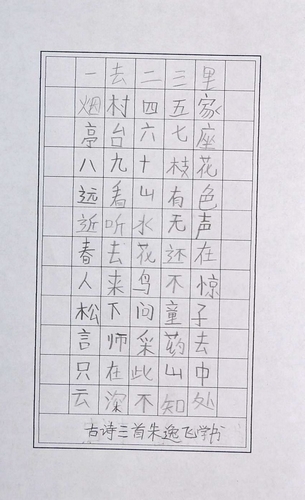 一去二三里
烟村四五家
亭台六七座
八九十枝花
远看山有色
近听水无声
春去花还在
人来鸟不惊
松下问童子
言师采药去
只在此山中
云深不知处
古诗三首朱逸飞学书